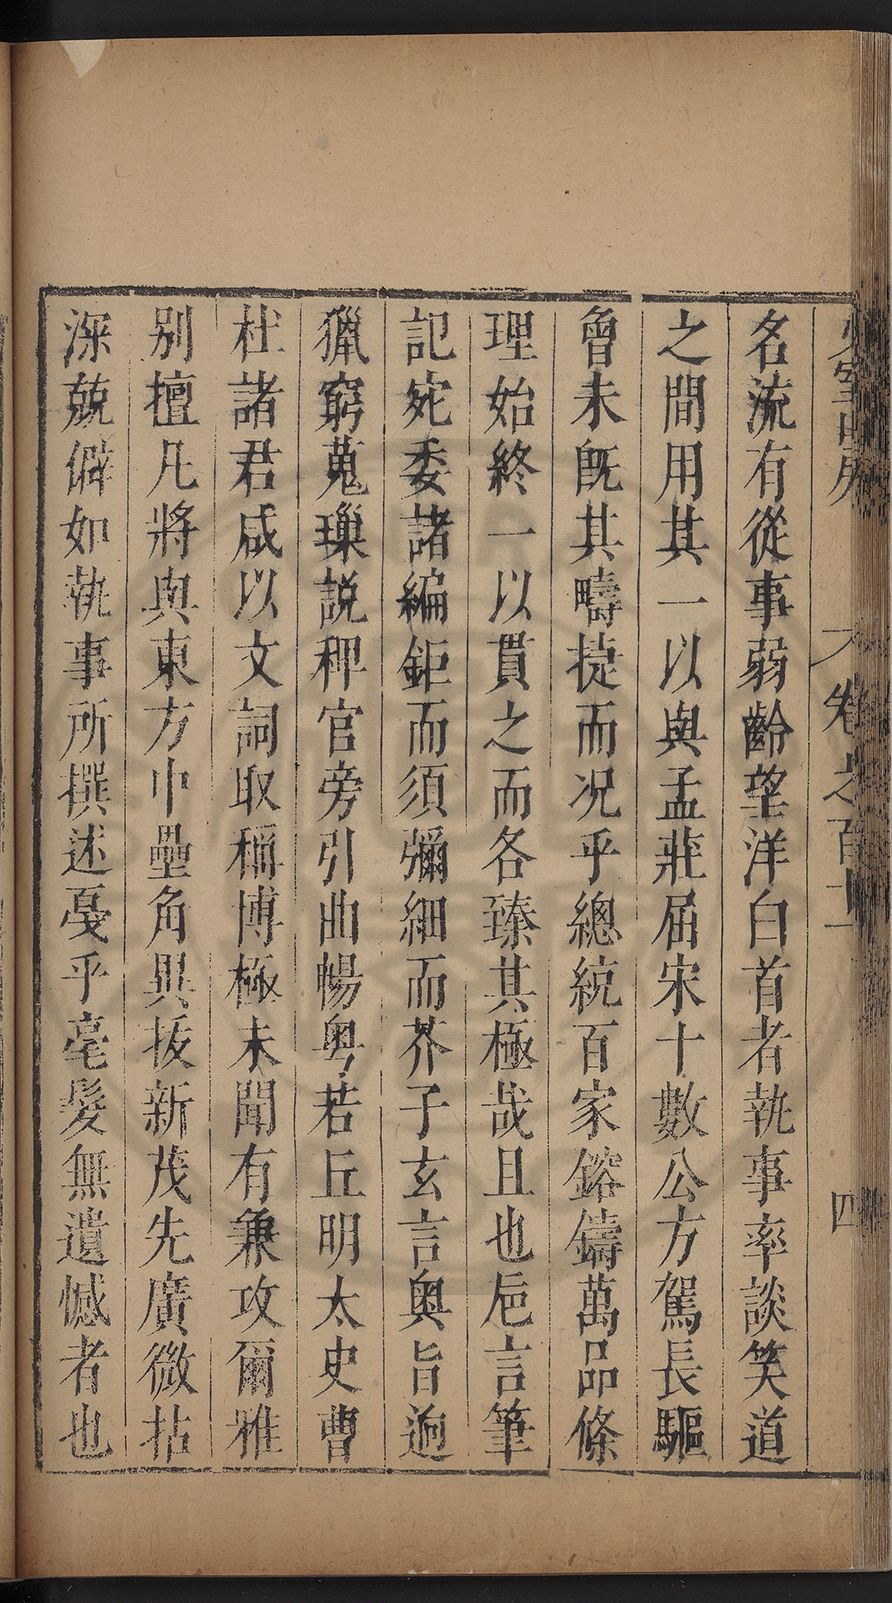 少室山房　卷之百十一　四
名流有從事弱齡望洋白首者執事率談笑道
之間用其一以與孟莊屈宋十數公方駕長驅
曾未旣其疇捷而况乎總統百家鎔鑄萬品條
理始終一以貫之而各臻其極哉且也巵言筆
記宛委諸編鉅而須彌細而芥子玄言奥旨逈
獵窮蒐璅説稗官旁引曲暢粤若丘明太史曹
杜諸君咸以文詞取稱博極未聞有兼攻爾雅
别擅凡將與東方中壘角異扳新茂先廣微拈
深兢僻如執事所撰述戞乎毫髮無遺憾者也